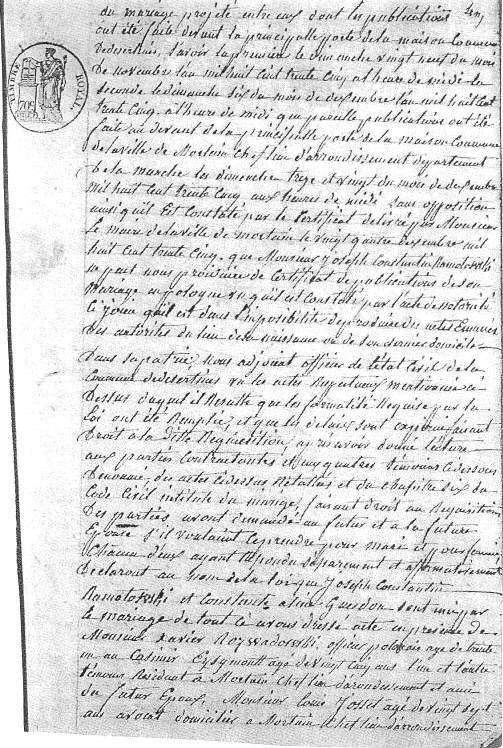 du mariage projeté entre eux dont les publications
ont été faite devant la principalle porte de la maison Commune
de desertines, savoir la premiere le dimanche vingt neuf du mois
de novembre l'an mil huit Cent trente Cinq a l'heure de midi la
seconde le dimanche six du mois de dessembre l'an mil huit Cent
trente Cinq, a l'heure de midi, que pareille publications ont été
faite au devant de la principalle porte de la maison Commune
de la ville de Mortain Chef lieu d'arrondissement departement
de la manche les dimanches treze et vingt du mois de dessembre
mil huit Cent trente Cinq aux heures de midi, sans opposition
ainsi qu'il Est Constaté par le Certificat delivré par Monsieur
le maire de la ville de mortain le vingt quatre dessembre mil
huit Cent trente Cinq, que Monsieur Joseph Constantin Ramotowski
ne peut nous produire de Certificat de publications de son
mariage en pologne vu qu'il est Constaté par l'acte de notoriété
qu'il est dans l'impossibilité de produire des actes Emanés
des autorités du lieu de sa naissance ou de son dernier domicile
Dans sa patrie, nous adjoint officier de l'état Civil de la
Commune de desertines vu les actes Respectueux mentionnés ci
Dessus duquel il Resulte que les formalité Requise par la
Loi ont été Remplie, et que les delais sont expirés faisant
Droit a la ditte Requisition, apres avoir donné lecture
aux parties Contractantes et aux quatres temoins ci dessous
Denommé, des actes ci dessus Relatées et du chapitre six du
Code Civil intitulé du mariage, faisant droit au Requisition
Des parties avons demandé au futur et a la future
Epouse s'il voulaient se prendre pour mari et pour femme
Chacun d'eux ayant Repondu separement et affirmativement
Declarons au nom de la loi que Joseph Constantin
Ramotowski et Constante Guesdon sont unis par
le mariage de tout ce avons dressé acte en presence de
Monsieur xavier Rozwadowski officier polonois age de trente
un an Casimir Eysymontt age de vingt Cinq ans l'un et l'autre
temoins Residant a Mortain Chef lieu d'arrondissement et amis
du futur Epoux, Monsieur Louis Josset age de vingt sept
ans avocat domicilier a Mortain Chef lieu d'arrondissement
TIMBRE ROYAL